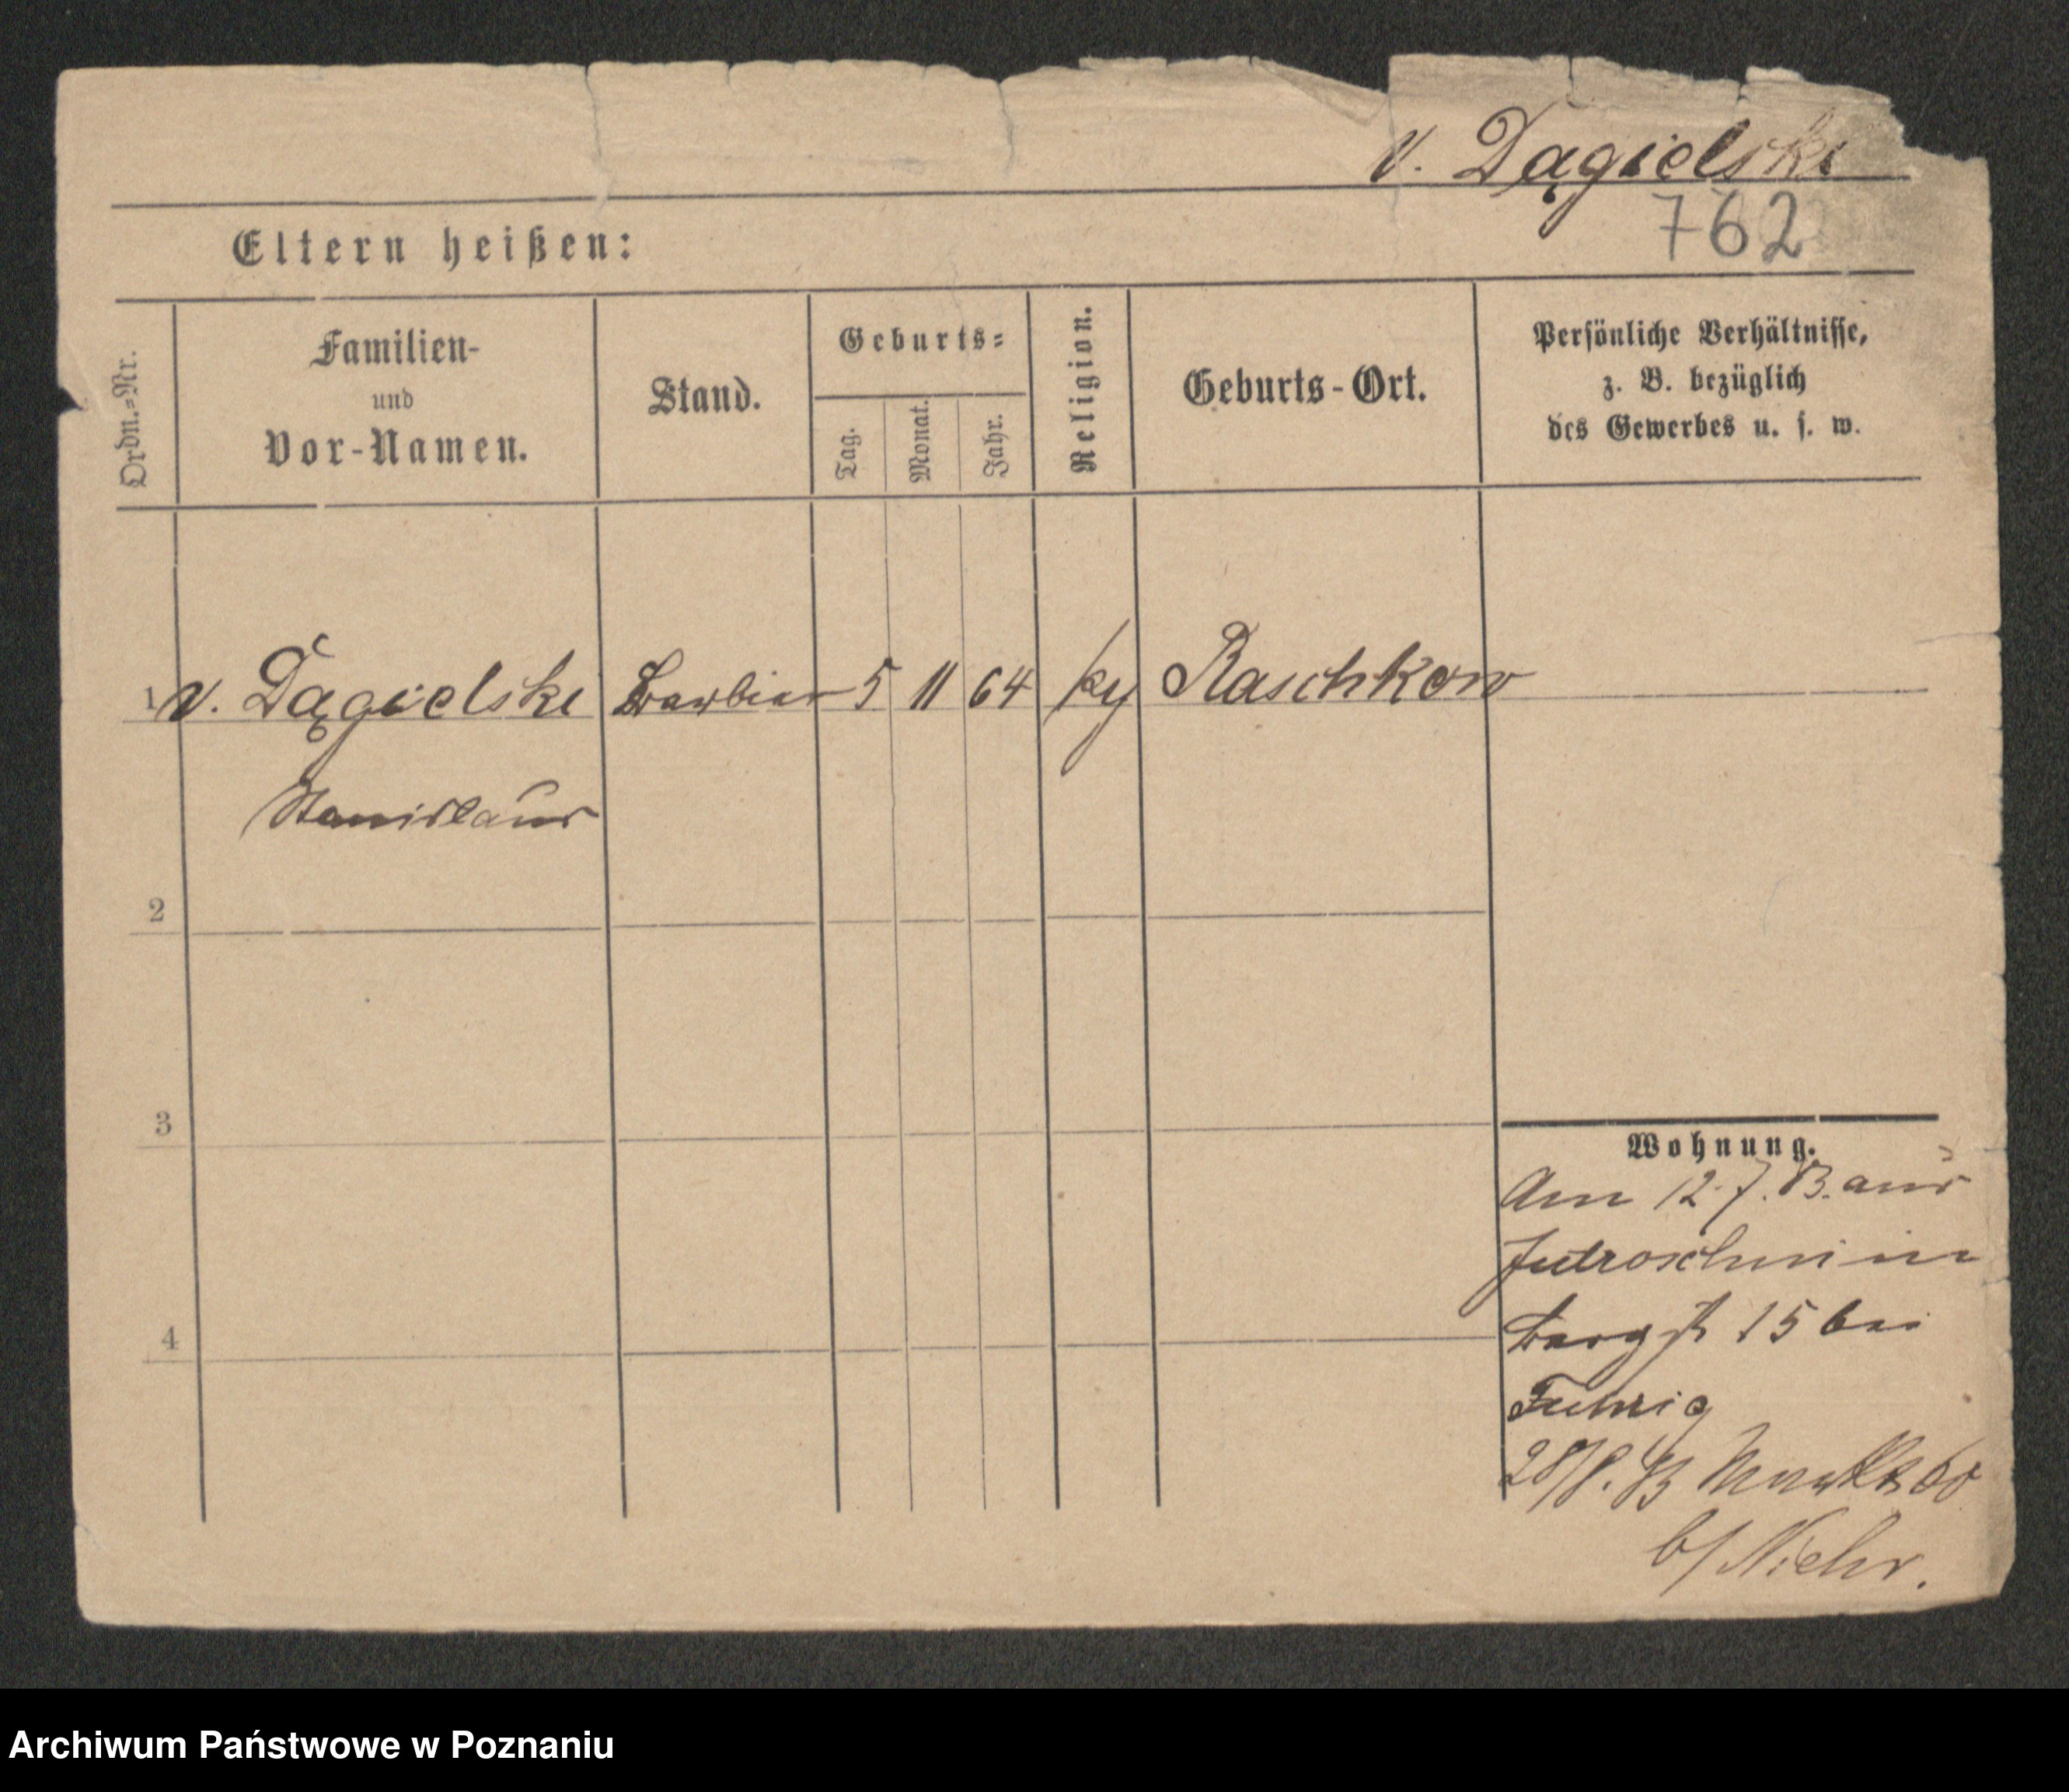 v. Dągielski
762
Eltern heißen:
Ordn.-Nr.
Familien-
und
Vor-Namen.
Stand.
Geburts-
Tag.
Monat.
Jahr.
Religion.
Geburts-Ort.
Persönliche Verhältnisse,
z. B. bezüglich
des Gewerbes u. s. w.
1 v. Dągielski Barbier 5 11 64 Raschkow
Stanislaus
2
3
4
Wohnung.
Am 12.7. aus
Jutroschin in
Berg st 15 bei
Fuhrig
28/8. Markt 60
b/ Niehr.
Archiwum Państwowe w Poznaniu